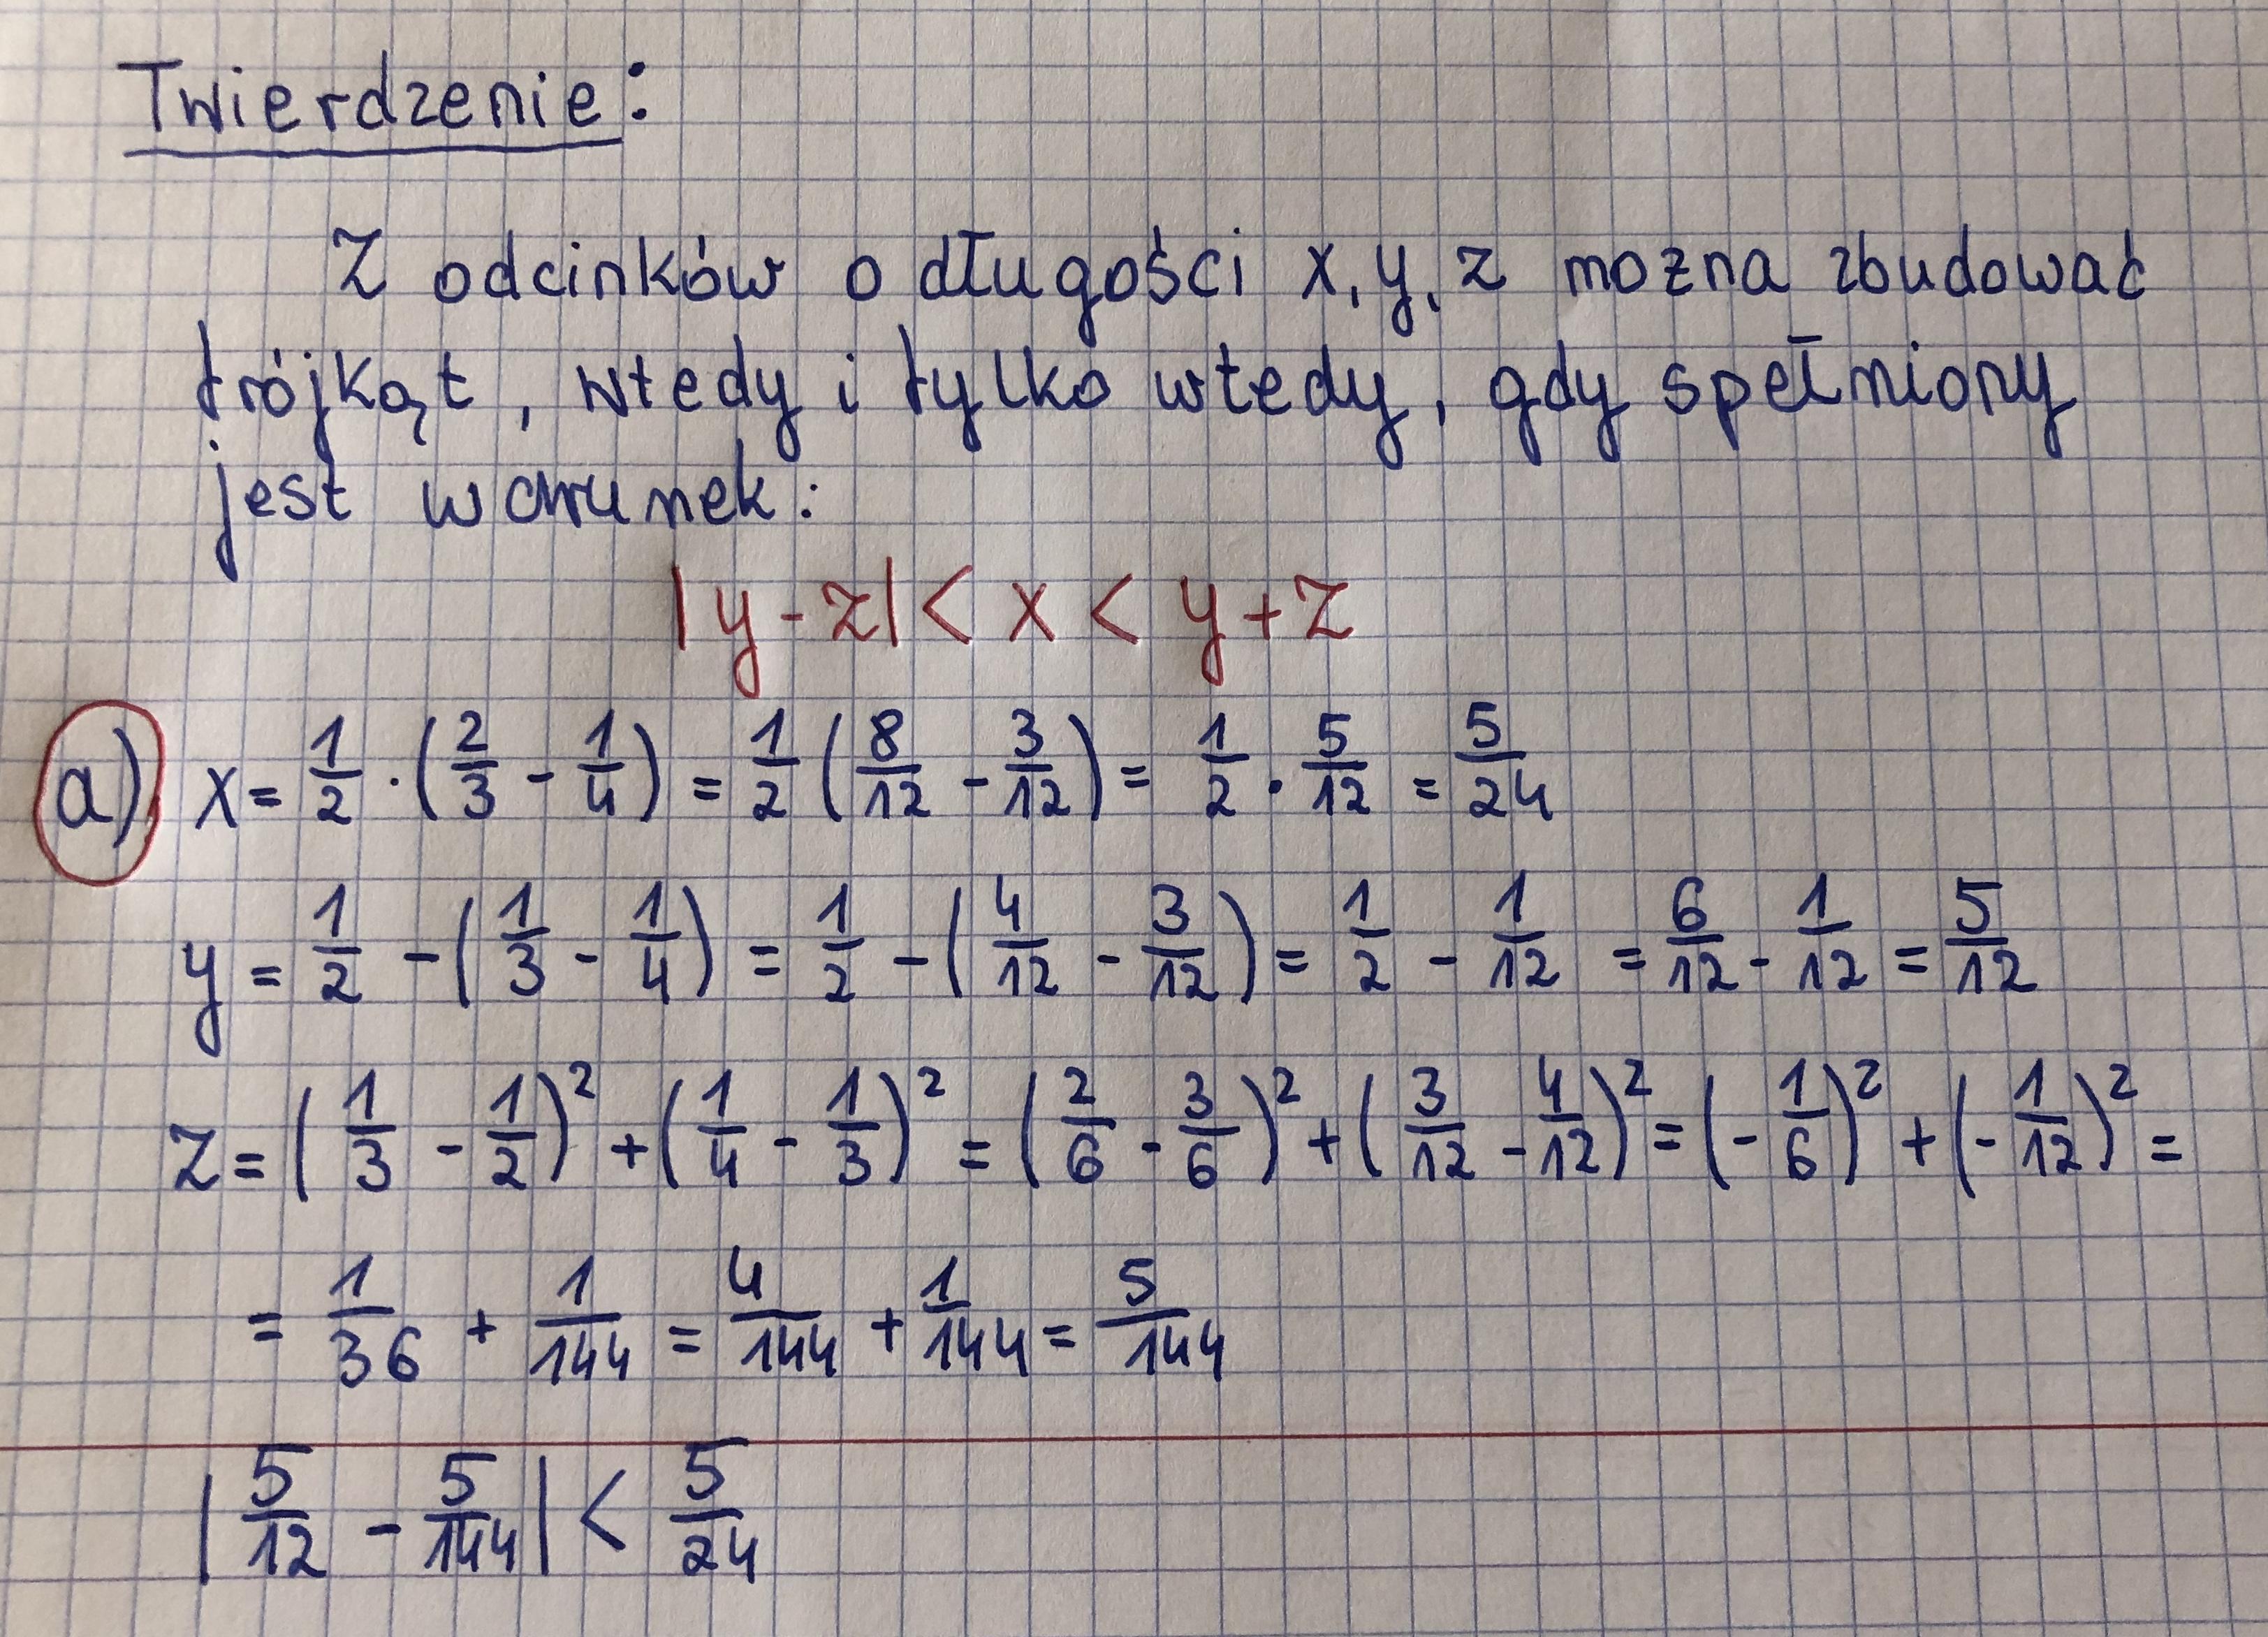 Twierdzenie:
Z odcinków o długości x, y, z można zbudować
trójkąt, wtedy i tylko wtedy, gdy spełniony
jest warunek:
|y-z| < x < y+z
a) x = 1/2 · (2/3 - 1/4) = 1/2 (8/12 - 3/12) = 1/2 · 5/12 = 5/24
y = 1/2 - (1/3 - 1/4) = 1/2 - (4/12 - 3/12) = 1/2 - 1/12 = 6/12 - 1/12 = 5/12
z = (1/3 - 1/2)² + (1/4 - 1/3)² = (2/6 - 3/6)² + (3/12 - 4/12)² = (-1/6)² + (-1/12)² =
= 1/36 + 1/144 = 4/144 + 1/144 = 5/144
|5/12 - 5/144| < 5/24